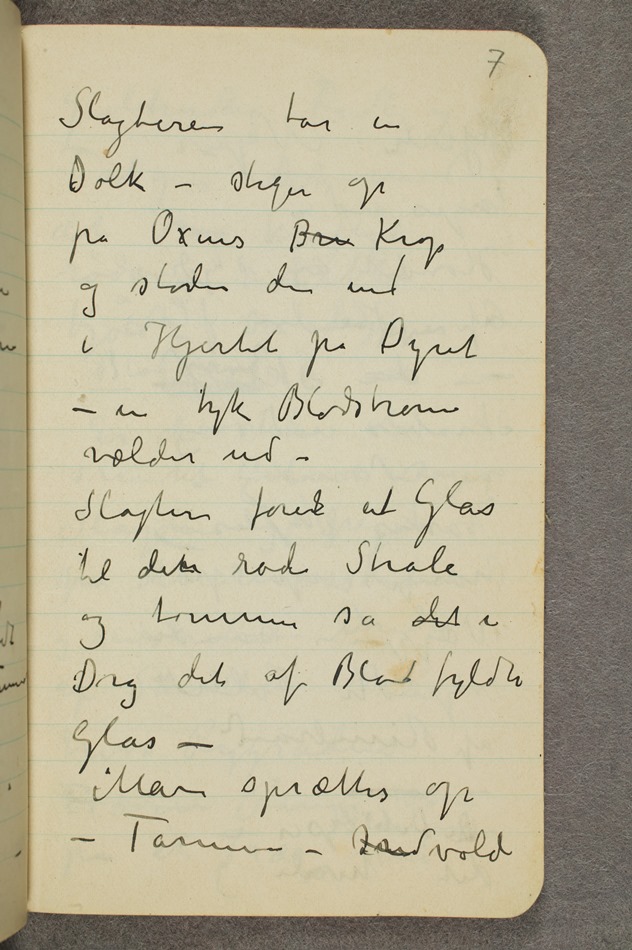 7
Slagteren tar en
Dolk – stiger op
på Oxens Bru Krop
og støder den ind
i Hjertet på Dyret
– en tyk Blodstrøm
vælder ud –
Slagteren fører et Glas
til den røde Stråle
og tømmer så det i
Drag det af Blod fyldte
Glas –
Maven sprættes op
– Tarmene – Indvold